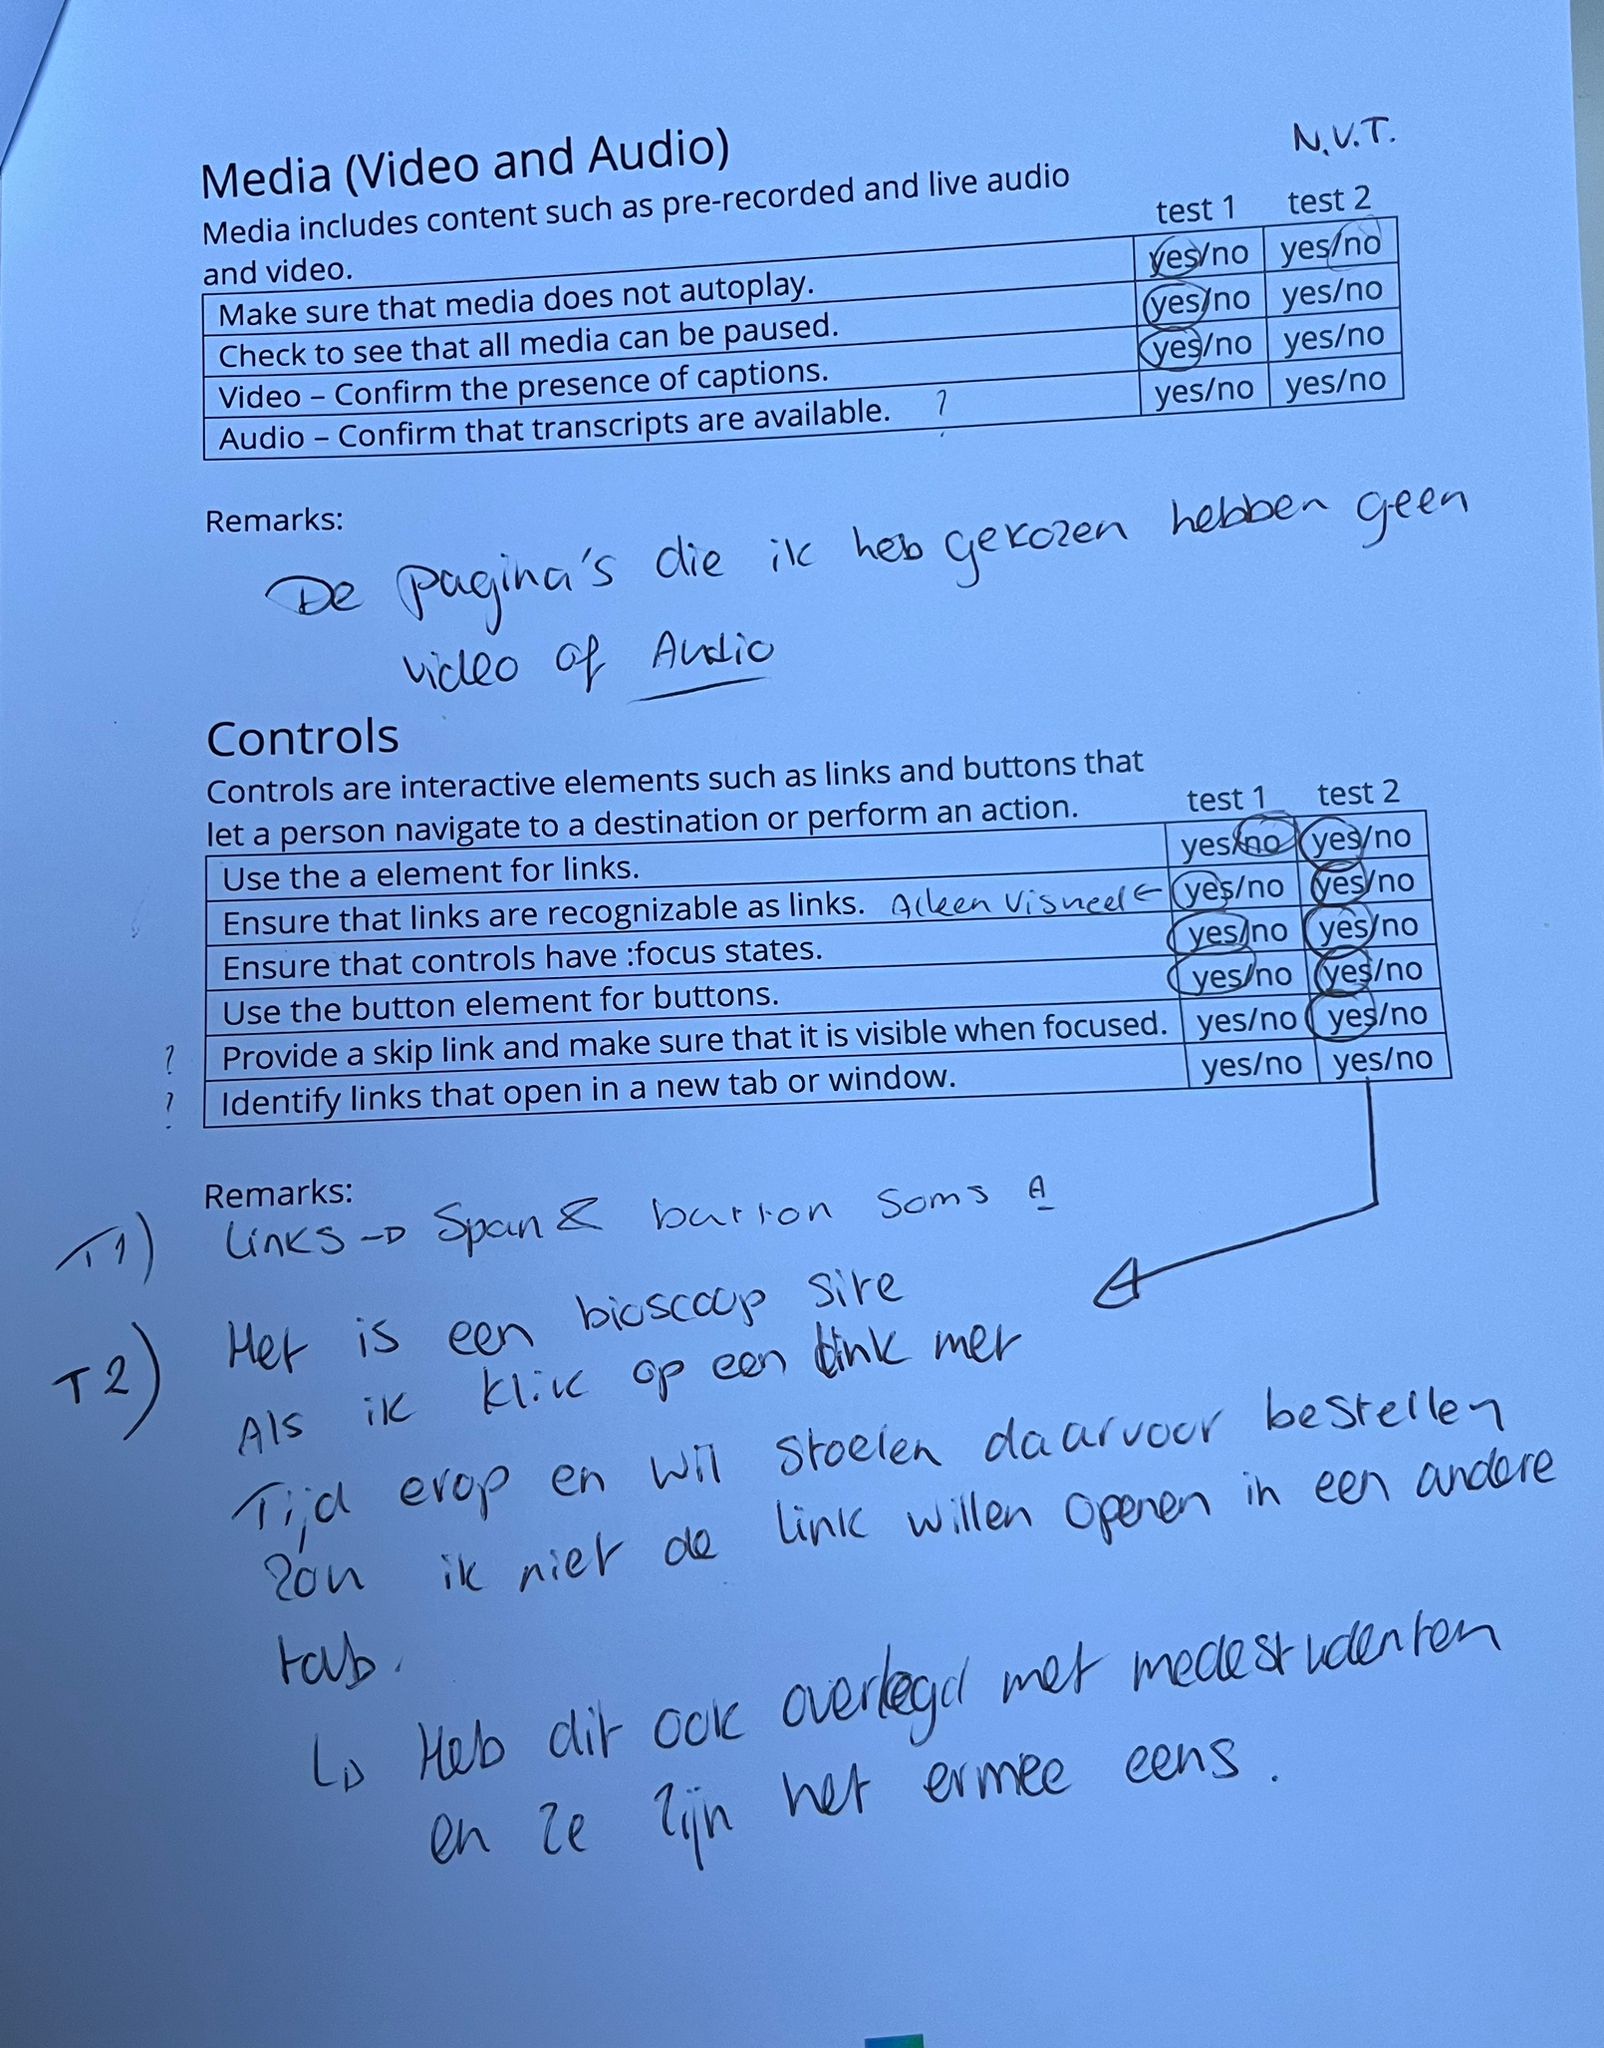 N.V.T.
Media (Video and Audio)
Media includes content such as pre-recorded and live audio
and video.
test 1 test 2
Make sure that media does not autoplay. yes/no yes/no
Check to see that all media can be paused. yes/no yes/no
Video – Confirm the presence of captions. yes/no yes/no
Audio – Confirm that transcripts are available. ? yes/no yes/no
Remarks:
De pagina's die ik heb gekozen hebben geen
video of Audio
Controls
Controls are interactive elements such as links and buttons that
let a person navigate to a destination or perform an action.
test 1 test 2
Use the a element for links. yes/no yes/no
Ensure that links are recognizable as links. Alleen Visueel ← yes/no yes/no
Ensure that controls have :focus states. yes/no yes/no
Use the button element for buttons. yes/no yes/no
? Provide a skip link and make sure that it is visible when focused. yes/no yes/no
? Identify links that open in a new tab or window. yes/no yes/no
Remarks:
T1) Links → Span & button soms A
T2) Het is een bioscoop site
Als ik klik op een link met
Tijd erop en wil stoelen daarvoor bestellen
zou ik niet de link willen openen in een andere
tab.
↳ Heb dit ook overlegd met medestudenten
en ze zijn het ermee eens.